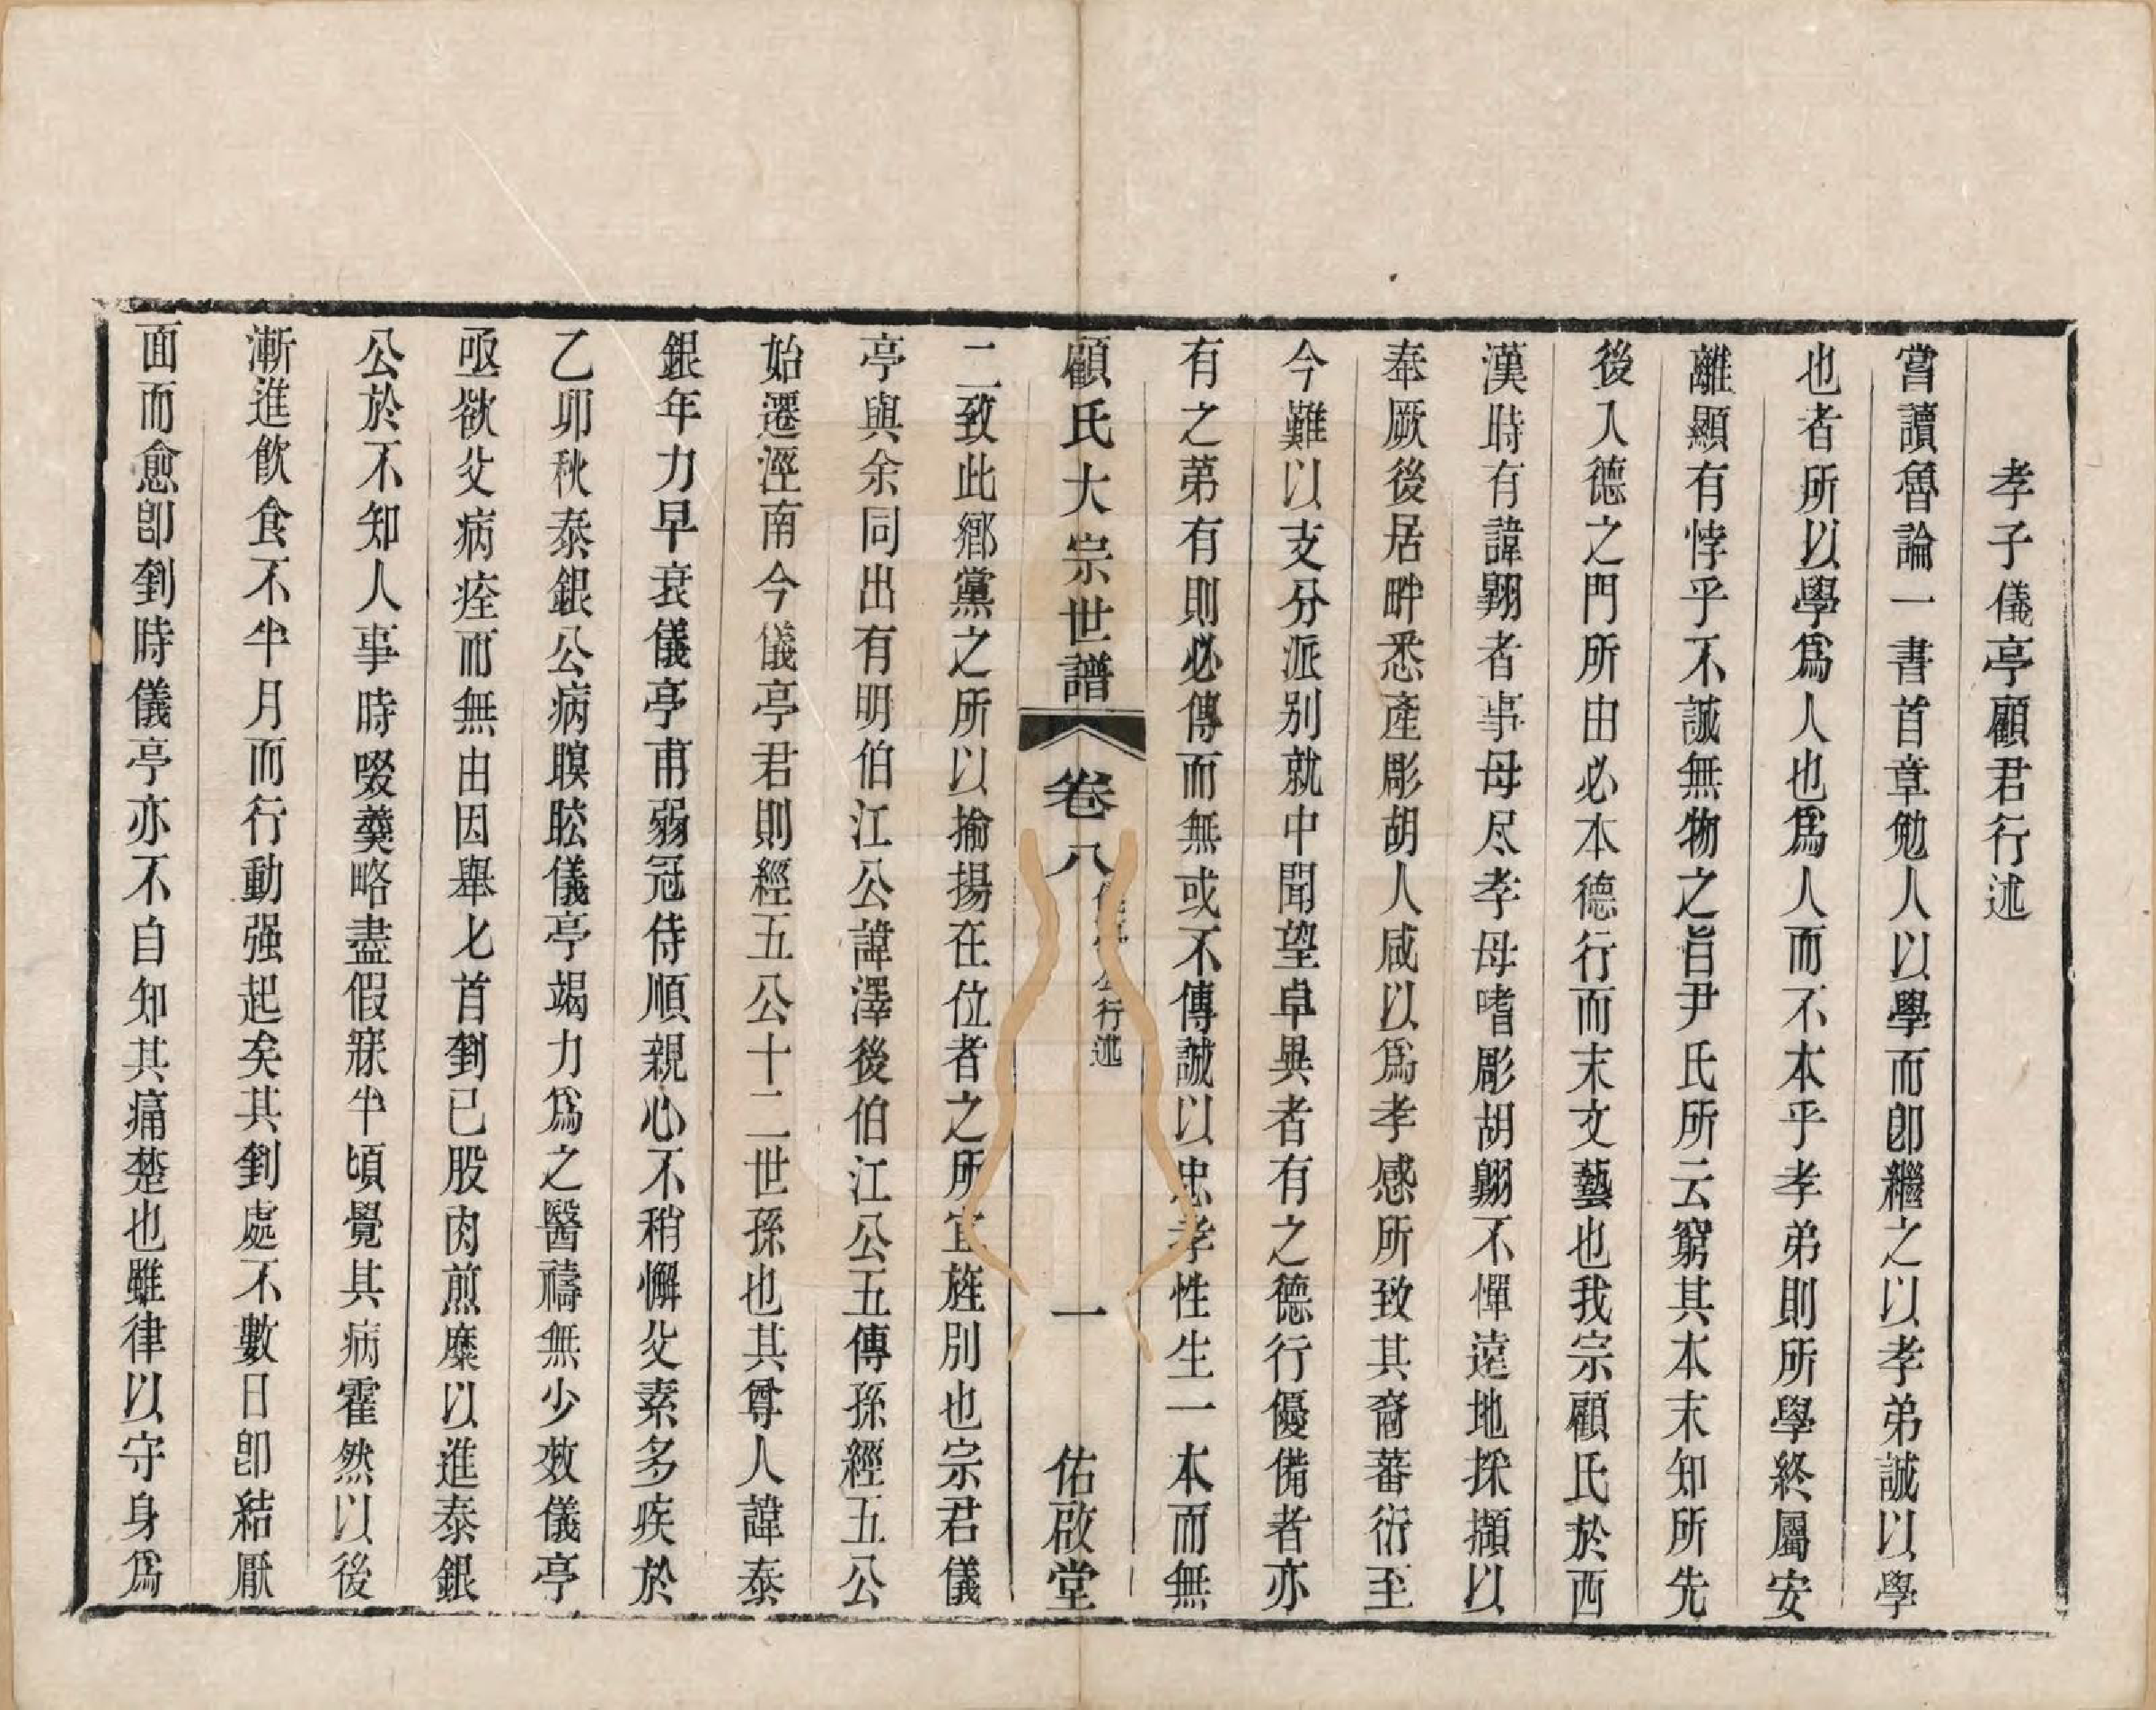 孝子儀亭顧君行述
嘗讀魯論一書首章勉人以學而卽繼之以孝弟誠以學
也者所以學爲人也爲人而不本乎孝弟則所學終屬安
離顯有悖乎不誠無物之旨尹氏所云窮其本末知所先
後入德之門所由必本德行而末文藝也我宗顧氏於西
漢時有諱翱者事母尽孝母嗜彫胡翱不憚遠地採擷以
奉厥後居畔悉產彫胡人咸以爲孝感所致其裔蕃衍至
今難以支分派别就中聞望卓異者有之德行優備者亦
有之第有則必傳而無或不傳誠以忠孝性生一本而無
顧氏大宗世譜 卷八 公行述 一 佑啟堂
二致此鄉黨之所以揄揚在位者之所宜旌别也宗君儀
亭與余同出有明伯江公諱澤後伯江公五傳孫經五公
始遷涇南今儀亭君則經五公十二世孫也其尊人諱泰
銀年力早衰儀亭甫弱冠侍順親心不稍懈父素多疾於
乙卯秋泰銀公病瞑眩儀亭竭力爲之醫禱無少效儀亭
亟欲父病痊而無由因舉匕首剉已股肉煎糜以進泰銀
公於不知人事時啜羹略盡假寐半頃覺其病霍然以後
漸進飲食不半月而行動强起矣其剉處不數日卽結厭
面而愈卽剉時儀亭亦不自知其痛楚也雖律以守身爲